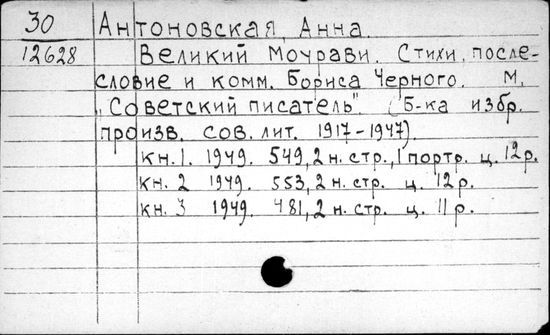 30 Антоновская, Анна.
12628 Великий Моурави. Стихи, после-
словие и комм. Бориса Черного. М.
"Советский писатель". (Б-ка избр.
произв. сов. лит. 1917-1947).
кн. 1. 1949. 549, 2 н. стр., 1 портр. ц. 12 р.
кн. 2 1949. 553, 2 н. стр. ц. 12 р.
кн. 3 1949. 481, 2 н. стр. ц. 11 р.